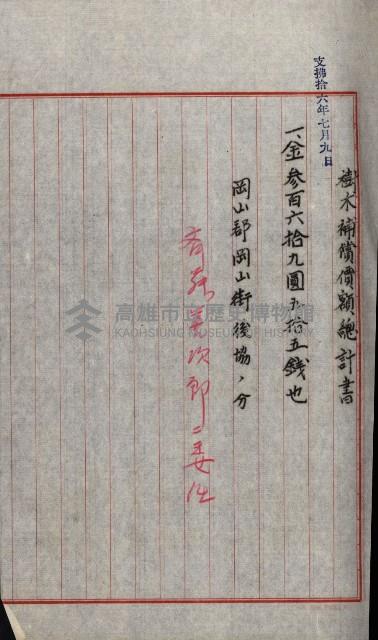 樹木補償價額總計書
支拂拾六年七月九日
一、金参百六拾九圓五拾五錢也
岡山郡岡山街後協ノ分
次郎ニ委任
高雄市立歷史博物館
KAOHSIUNG MUSEUM OF HISTORY